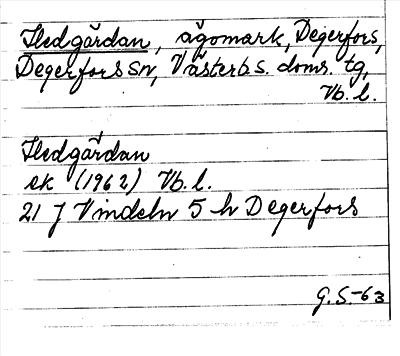 Hedgärdan, ägomark, Degerfors,
Degerfors sn, Västerb s. doms. tg,
Vb. l.
Hedgärdan
ek (1962) Vb. l.
21 J Vindeln 5 h Degerfors
G.S.-63